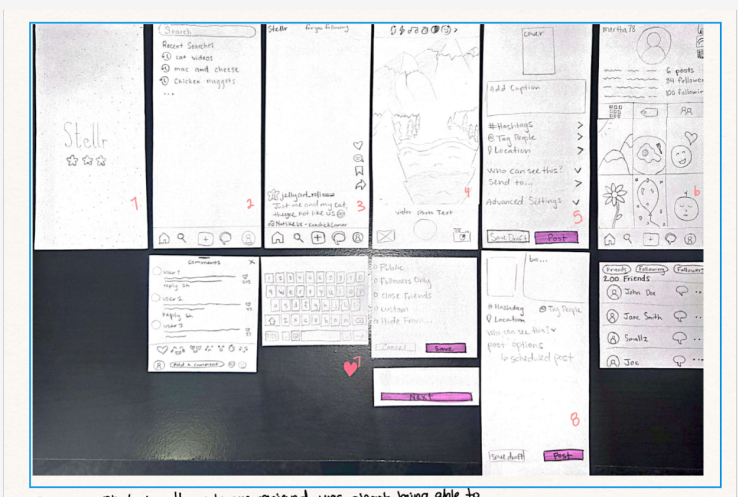 Stellr
1
Search
Recent Searches
cat videos
mac and cheese
Chicken nuggets
...
2
Stellr for you following
jellycat_
Just me and my cat,
theyre not like us
Not Like Us - Kendrick Lamar
3
4
video photo Text
cover
add Caption
#Hashtags >
Tag People >
Location >
Who can see this?
Send to...
Advanced Settings
5
Save Draft Post
martha78
6 posts
84 follower
100 followin
6
Comments X
user1
reply 5h
user2
reply
user3
Add a comment
1 2 3 4 5 6 7 8 9 0
q w e r t y u i o p
a s d f g h j k l
z x c v b n m
7
Public
Followers Only
Close Friends
Custom
Hide From...
Cancel Save
Next
#Hashtag Tag People
Location
Who can see this?
post options
scheduled post
8
Save draft Post
Friends Following Followers
200 Friends
John Doe
Jane Smith
Smallz
Joe
being able to